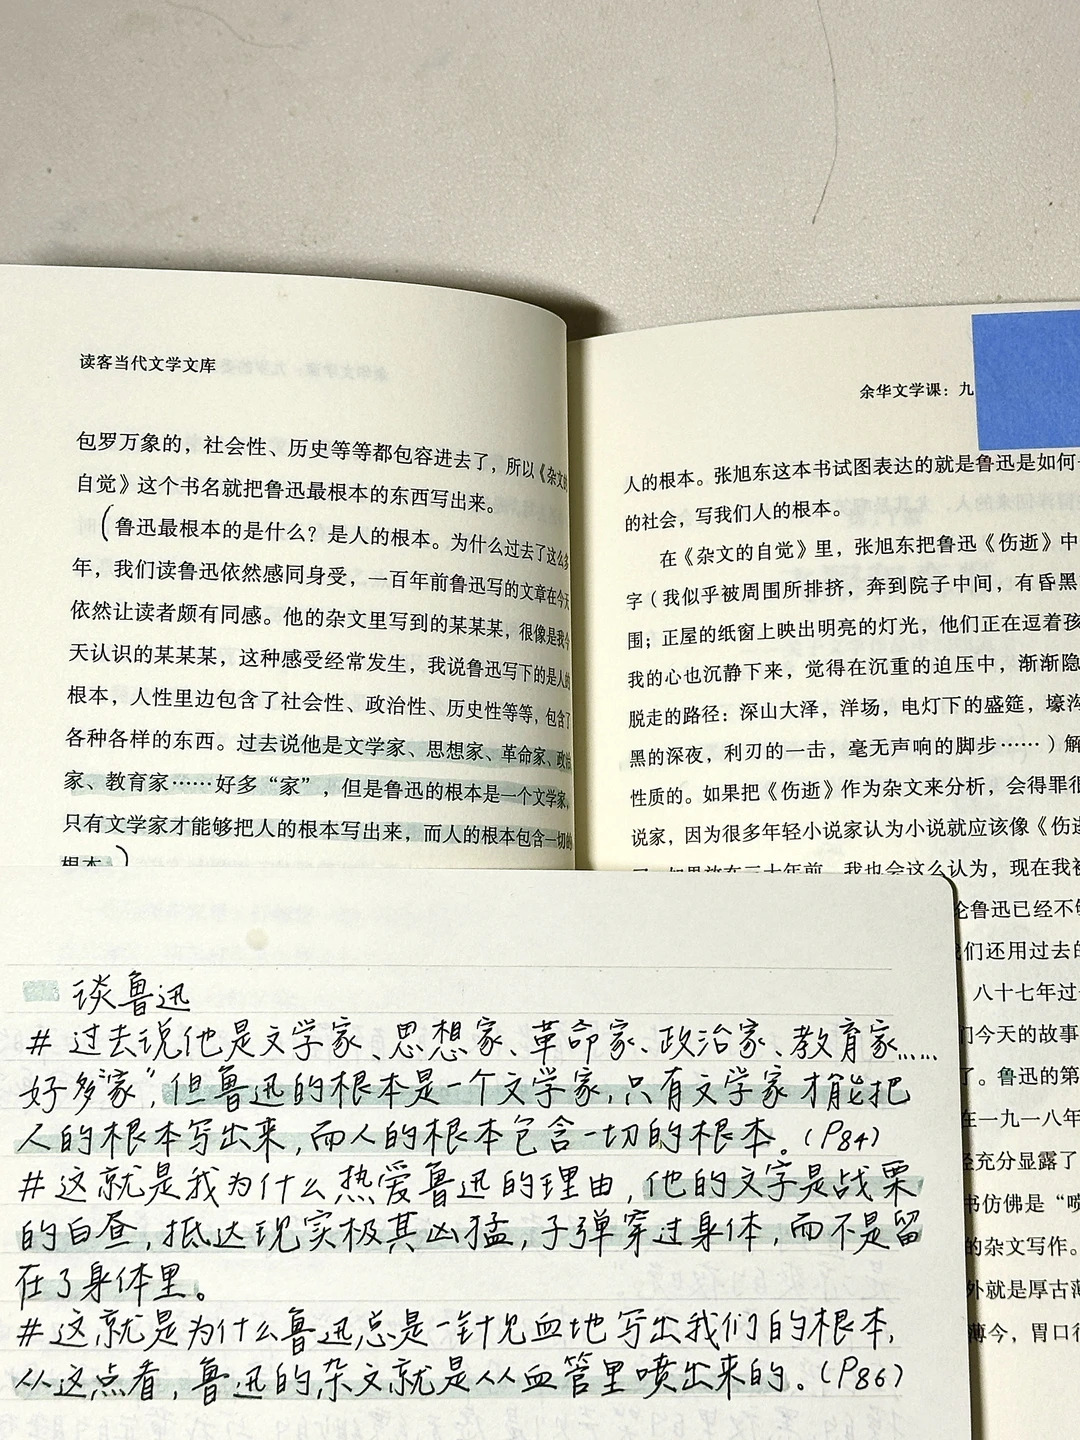 读客当代文学文库
包罗万象的，社会性、历史等等都包容进去了，所以《杂文的
自觉》这个书名就把鲁迅最根本的东西写出来。
（鲁迅最根本的是什么？是人的根本。为什么过去了这么多
年，我们读鲁迅依然感同身受，一百年前鲁迅写的文章在今天
依然让读者颇有同感。他的杂文里写到的某某某，很像是我今
天认识的某某某，这种感受经常发生，我说鲁迅写下的是人的
根本，人性里边包含了社会性、政治性、历史性等等，包含了
各种各样的东西。过去说他是文学家、思想家、革命家、政治
家、教育家……好多“家”，但是鲁迅的根本是一个文学家，
只有文学家才能够把人的根本写出来，而人的根本包含一切的
根本。）
余华文学课：九
人的根本。张旭东这本书试图表达的就是鲁迅是如何
的社会，写我们人的根本。
在《杂文的自觉》里，张旭东把鲁迅《伤逝》中
字（我似乎被周围所排挤，奔到院子中间，有昏黑
围；正屋的纸窗上映出明亮的灯光，他们正在逗着孩
我的心也沉静下来，觉得在沉重的迫压中，渐渐隐
脱走的路径：深山大泽，洋场，电灯下的盛筵，壕沟
黑的深夜，利刃的一击，毫无声响的脚步……）解
性质的。如果把《伤逝》作为杂文来分析，会得罪很
说家，因为很多年轻小说家认为小说就应该像《伤逝
如果放在三十年前，我也会这么认为，现在我被
论鲁迅已经不够
我们还用过去的
八十七年过
们今天的故事
了。鲁迅的第
在一九一八年
经充分显露了
书仿佛是“喷
的杂文写作。
外就是厚古薄
薄今，胃口很
谈鲁迅
# 过去说他是文学家、思想家、革命家、政治家、教育家……
好多“家”，但鲁迅的根本是一个文学家，只有文学家才能把
人的根本写出来，而人的根本包含一切的根本。（P84）
# 这就是我为什么热爱鲁迅的理由，他的文字是战栗
的白昼，抵达现实极其凶猛，子弹穿过身体，而不是留
在了身体里。
# 这就是为什么鲁迅总是一针见血地写出我们的根本，
从这点看，鲁迅的杂文就是从血管里喷出来的。（P86）